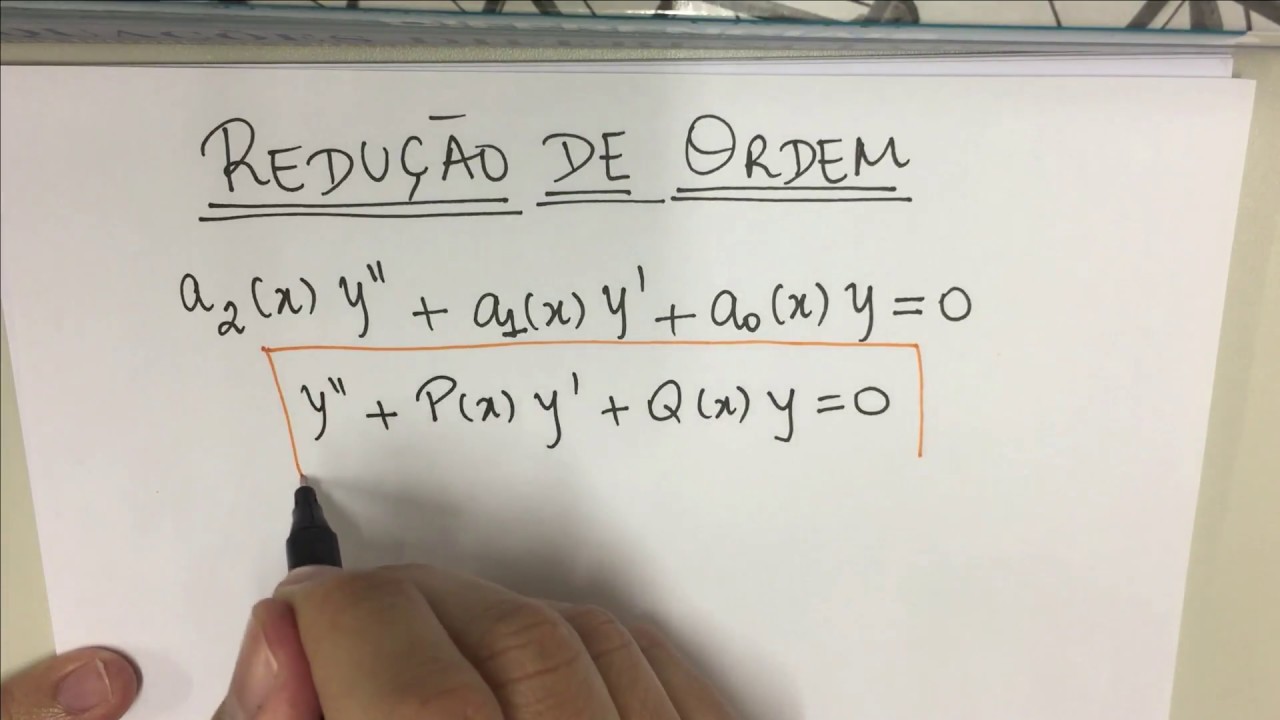 REDUÇÃO DE ORDEM
a₂(x) y'' + a₁(x) y' + a₀(x) y = 0
y'' + P(x) y' + Q(x) y = 0